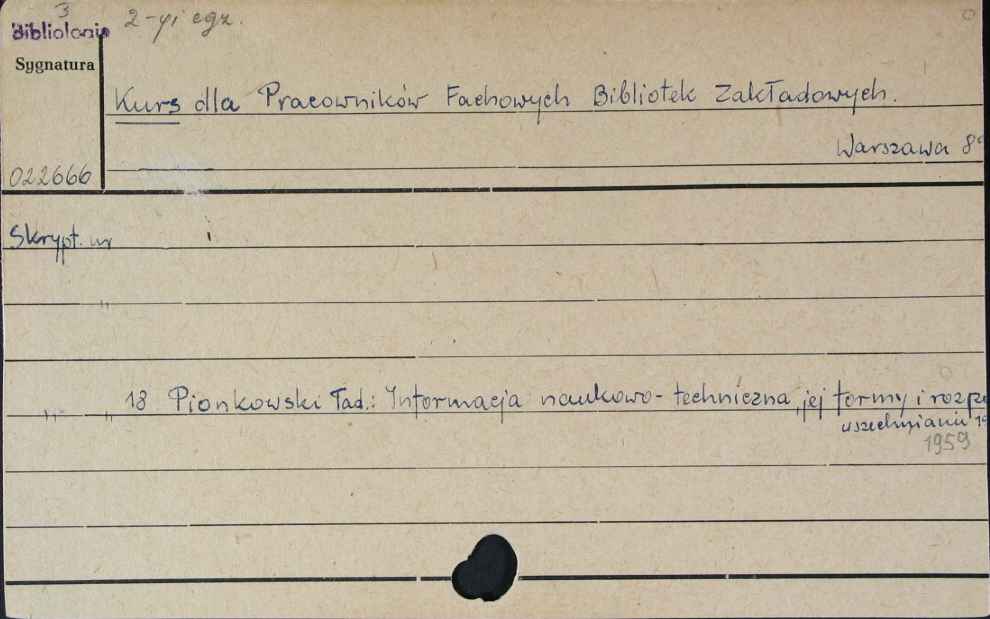 3
2-gi egz.
Bibliolonia
Sygnatura
Kurs dla Pracowników Fachowych Bibliotek Zakładowych.
Warszawa 8°
022666
Skrypt. nr
„
„ „ 18 Pionkowski Tad.: Informacja naukowo-techniczna, jej formy i rozpo
wszechnianiu 19
1959